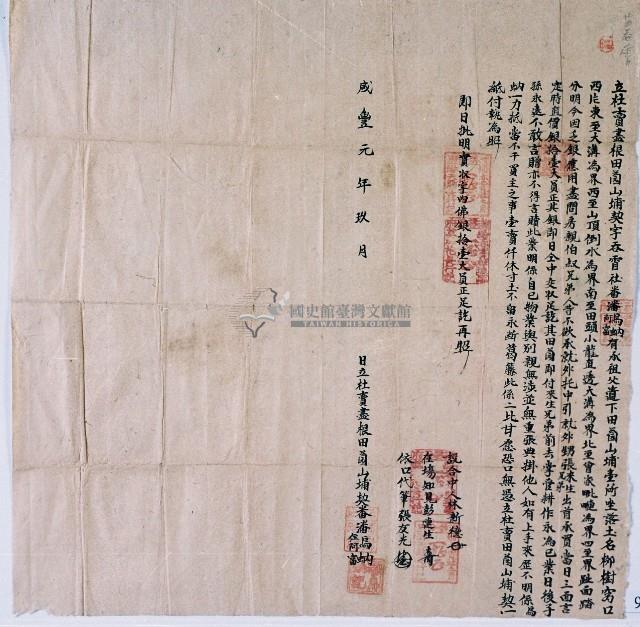 立杜賣盡根田園山埔契字吞霄社番潘馬蚋 有承祖父遺下田園山埔壹所坐落土名柳樹窩口
阿富
西片東至大溝為界西至山頂倒水為界南至田頭小龍直透大溝為界北至曾家毗連為界四至界趾面踏
分明今因乏銀應用盡問房親伯叔兄弟人等不欲承就外托中引就外甥張來生出首承買當日三面言
定時直價銀拾壹大員正其銀即日仝中交收足訖其田園即付來生兄弟前去掌管耕作永為己業日後子
孫永遠不敢言贈亦不得言贖此業明係自己物業與別親無涉並無重張典掛他人如有上手來歷不明係馬
蚋一力抵當不干買主之事壹賣仟休寸土不留永斷葛藤此係二比甘愿恐口無憑立杜賣田園山埔契一
紙付執為照
即日批明實收字內佛銀拾壹大員正足訖再照
說合中人林新德
在場知見彭連生
依口代筆張友光
咸豐元年玖月 日立杜賣盡根田園山埔契番潘馬蚋
仝阿富
國史館臺灣文獻館
TAIWAN HISTORICA